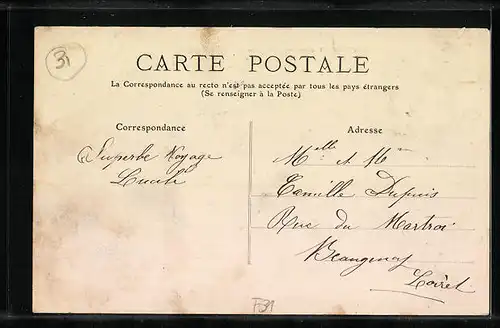 31
CARTE POSTALE
La Correspondance au recto n'est pas acceptée par tous les pays étrangers
(Se renseigner à la Poste)
Correspondance
Superbe Voyage
Lucile
Adresse
Melle et Mr
Camille Dupuis
Rue du Martroi
Beaugency
Loiret
F31